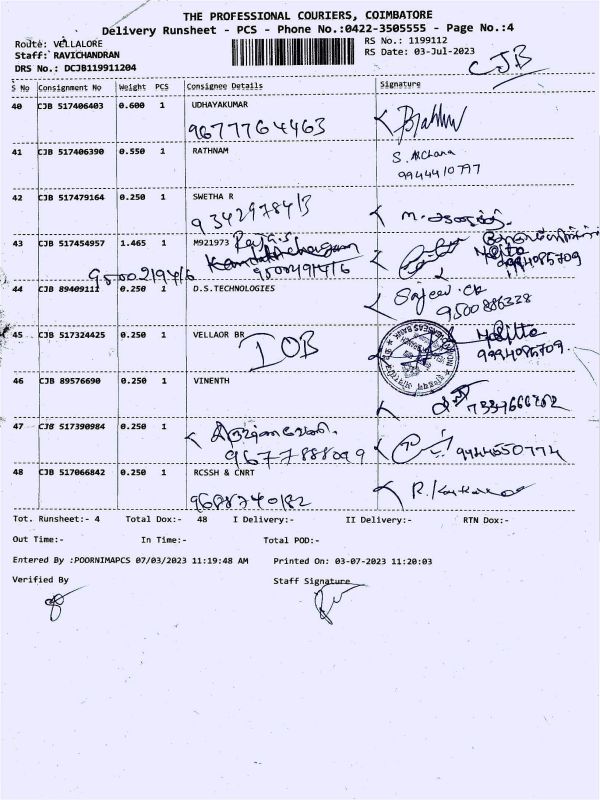 THE PROFESSIONAL COURIERS, COIMBATORE
Delivery Runsheet - PCS - Phone No.:0422-3505555 - Page No.:4
Route: VELLALORE
RS No.: 1199112
Staff: RAVICHANDRAN
RS Date: 03-Jul-2023
DRS No.: DCJB119911204
CJB
S No Consignment No Weight PCS Consignee Details Signature
40 CJB 517406403 0.600 1 UDHAYAKUMAR
9677764463
41 CJB 517406390 0.550 1 RATHNAM
S. Archana
9944410797
42 CJB 517479164 0.250 1 SWETHA R
9342978413
43 CJB 517454957 1.465 1 M921973
9500219416
44 CJB 89409111 0.250 1 D.S.TECHNOLOGIES
Sajeev.CK
9500886328
45 CJB 517324425 0.250 1 VELLAOR BR
IOB
46 CJB 89576690 0.250 1 VINENTH
47 CJB 517390984 0.250 1
9677888099
9944550774
48 CJB 517066842 0.250 1 RCSSH & CNRT
9688740182
Tot. Runsheet:- 4 Total Dox:- 48 I Delivery:- II Delivery:- RTN Dox:-
Out Time:- In Time:- Total POD:-
Entered By :POORNIMAPCS 07/03/2023 11:19:48 AM Printed On: 03-07-2023 11:20:03
Verified By Staff Signature